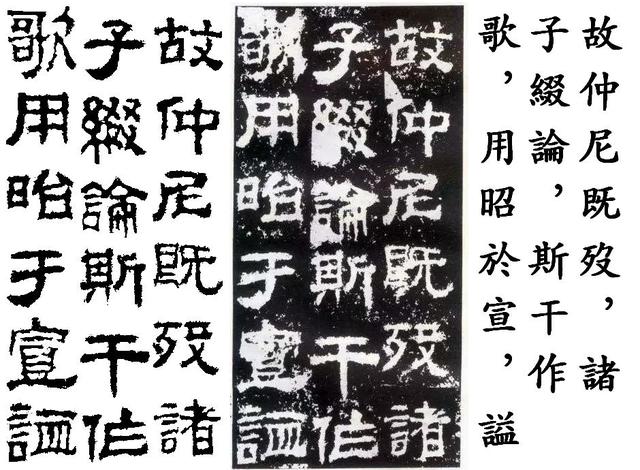 故仲尼既歿，諸
子綴論，斯干作
歌，用昭於宣，謚
故仲尼既歿諸
子綴論斯干作
歌用昭于宣謚
故仲尼既歿諸
子綴論斯干作
歌用昭于宣謚